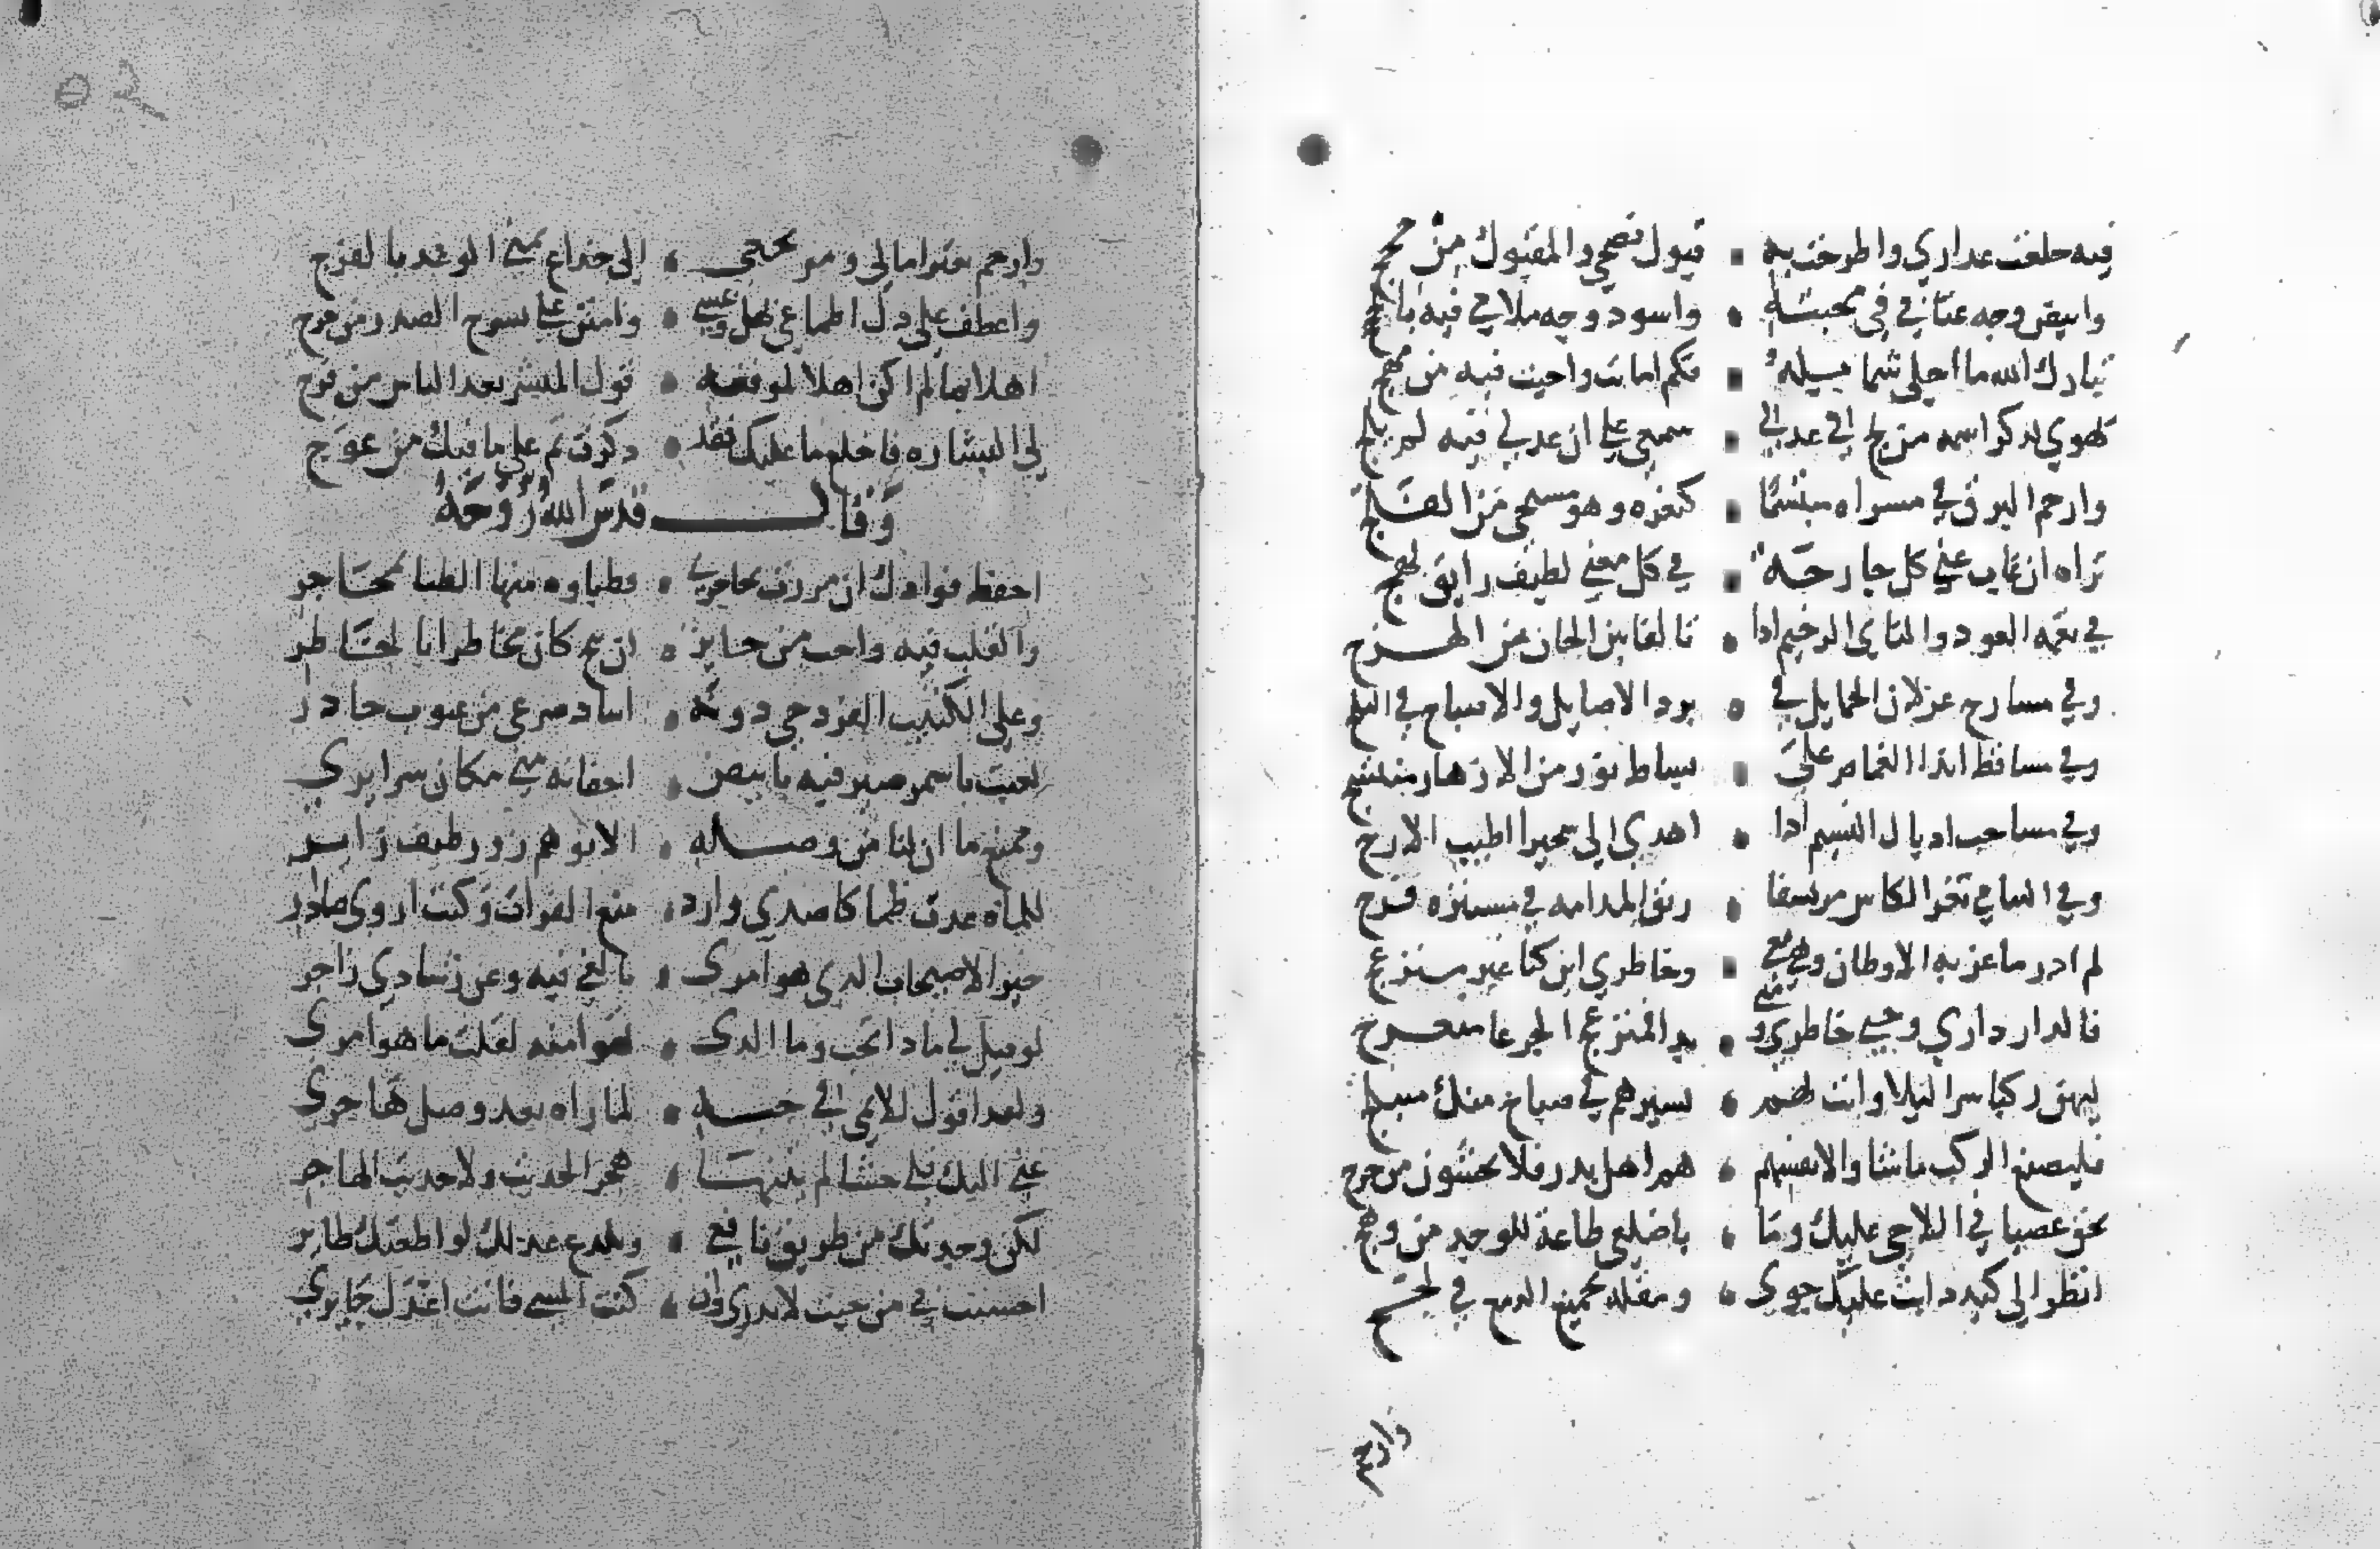 فيه خلعت عداري واطرحت به ▪ قبول نصحي والمقبول من حججي
وابيض وجه غنائي في محبته • واسود وجه ملامي فيه بالحجج
تبارك الله ما احلى شمايله ▪ فكم اماتت واحيت فيه من مهج
يهوي لذكر اسمه من لج في عدلي ▪ سمعي على ان عدلي فيه لم يلج
وارحم البرق في مسراه مبتسما ▪ كثغره وهو مستحي من الفلج
تراه ان غاب عني كل جارحة ▪ في كل معنى لطيف رايق بهج
في نغمة العود والناي الرخيم ادا • تالفا بين الحان من الهزج
وفي مسارح غزلان الخمايل في • برد الاصايل والاصباح في البلج
وفي مساقط اندا الغمام على ▪ بساط نور من الازهار منتسج
وفي مساحب اديال النسيم ادا • اهدي الي سحيرا اطيب الارج
وفي التثامي ثغر الكاس مرتشفا • ريق المدامه في مستنزه فرج
لم ادر ما غربه الاوطان وهو معي ▪ وخاطري اين كنا غير منزعج
فالدار داري وحبي حاضري ومتى • بدا فمنعرج الجرعا منعرجي
ليهن ركبا سرا ليلا وانت بهم • بسيرهم في صباح منك منبلج
فليصنع الركب ما شا والانفسهم • هم اهل بدر فلا يخشون من حرج
بحق عصياني اللاحي عليك وما • باضلعي طاعة للوجد من وهج
انظر الى كبد دابت عليك جوى • ومقله نجيع الدمع في لجج
وارحم
وارحم تعثر امالي ومرتجعي • الى خداع تمني الوعد بالفرج
واعطف على دل اطماعي بهل وعسى • وامنن علي بشرح الصدر من حرج
اهلا بما لم اكن اهلا لموقعه • قول المبشر بعد الياس من فرج
لك البشاره فاخلع ما عليك فقد • دكرت ثم على ما فيك من عوج
وقال قدس الله روحه ونور ضريحه
احفظ فوادك ان مررت بحاجر • فظباوه منها الظبا بمحاجر
والقلب فيه واجب من جايز • ان ينج كان مخاطرا بالخاطر
وعلى الكثيب الفرد حي دونه • اساد صرعى من عيون جادر
احبب باسمر صين فيه بابيض • اجفانه مني مكان سرايري
وممنع ما ان لنا من وصله • الا توهم زور طيف زاير
للماه عدت ظما كاصدى وارد • منع الفرات وكنت اروى صادر
خير الاصيحاب الدي هو امري • بالغي فيه وعن رشادي زاجر
لو قيل لي مادا تحب وما الدي • تهواه منه لقلت ما هو امري
ولقد اقول للايمي في حبه • لما راه بعيد وصلي هاجري
عني اليك فلي حشا لم يثنها • هجر الحديث ولا حديث الهاجر
لكن وجدتك من طريق نافعي • وبلدع عدلك لو اطعتك ضايري
احسنت لي من حيث لا تدري وان • كنت المسي فانت اعدل جاير